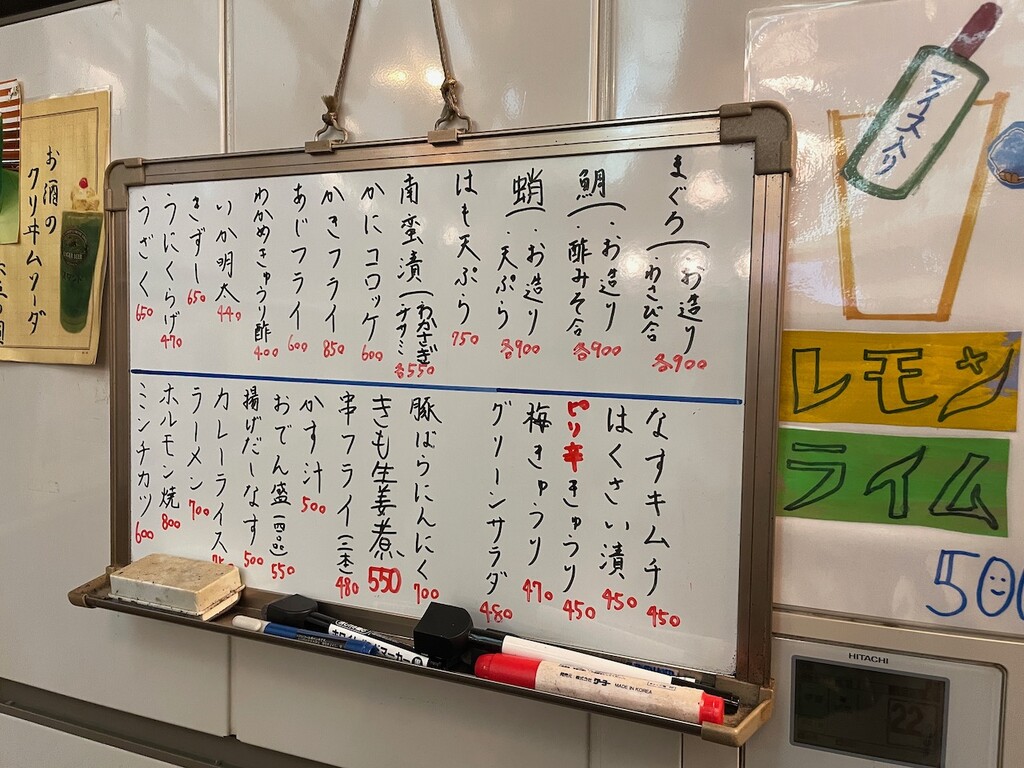 まぐろ(・お造り
・わさび合
各900
鯛(・お造り
・酢みそ合
各900
蛸(・お造り
・天ぷら
各900
はも天ぷら 750
南蛮漬(わかさぎ
ササミ
各550
かにコロッケ 600
かきフライ 850
あじフライ 600
わかめきゅうり酢 400
いか明太 440
きずし 650
うにくらげ 470
うざく 650
なすキムチ 450
はくさい漬 450
ピリ辛きゅうり 450
梅きゅうり 470
グリーンサラダ 480
豚ばらにんにく 700
きも生姜煮 550
串フライ(二本) 480
かす汁 500
おでん盛(四品) 550
揚げだしなす 500
カレーライス
ラーメン 700
ホルモン焼 800
ミンチカツ 600
お酒の
クリヰムソーダ
アイス入り
レモン
ライム
500
HITACHI
22
MADE IN KOREA